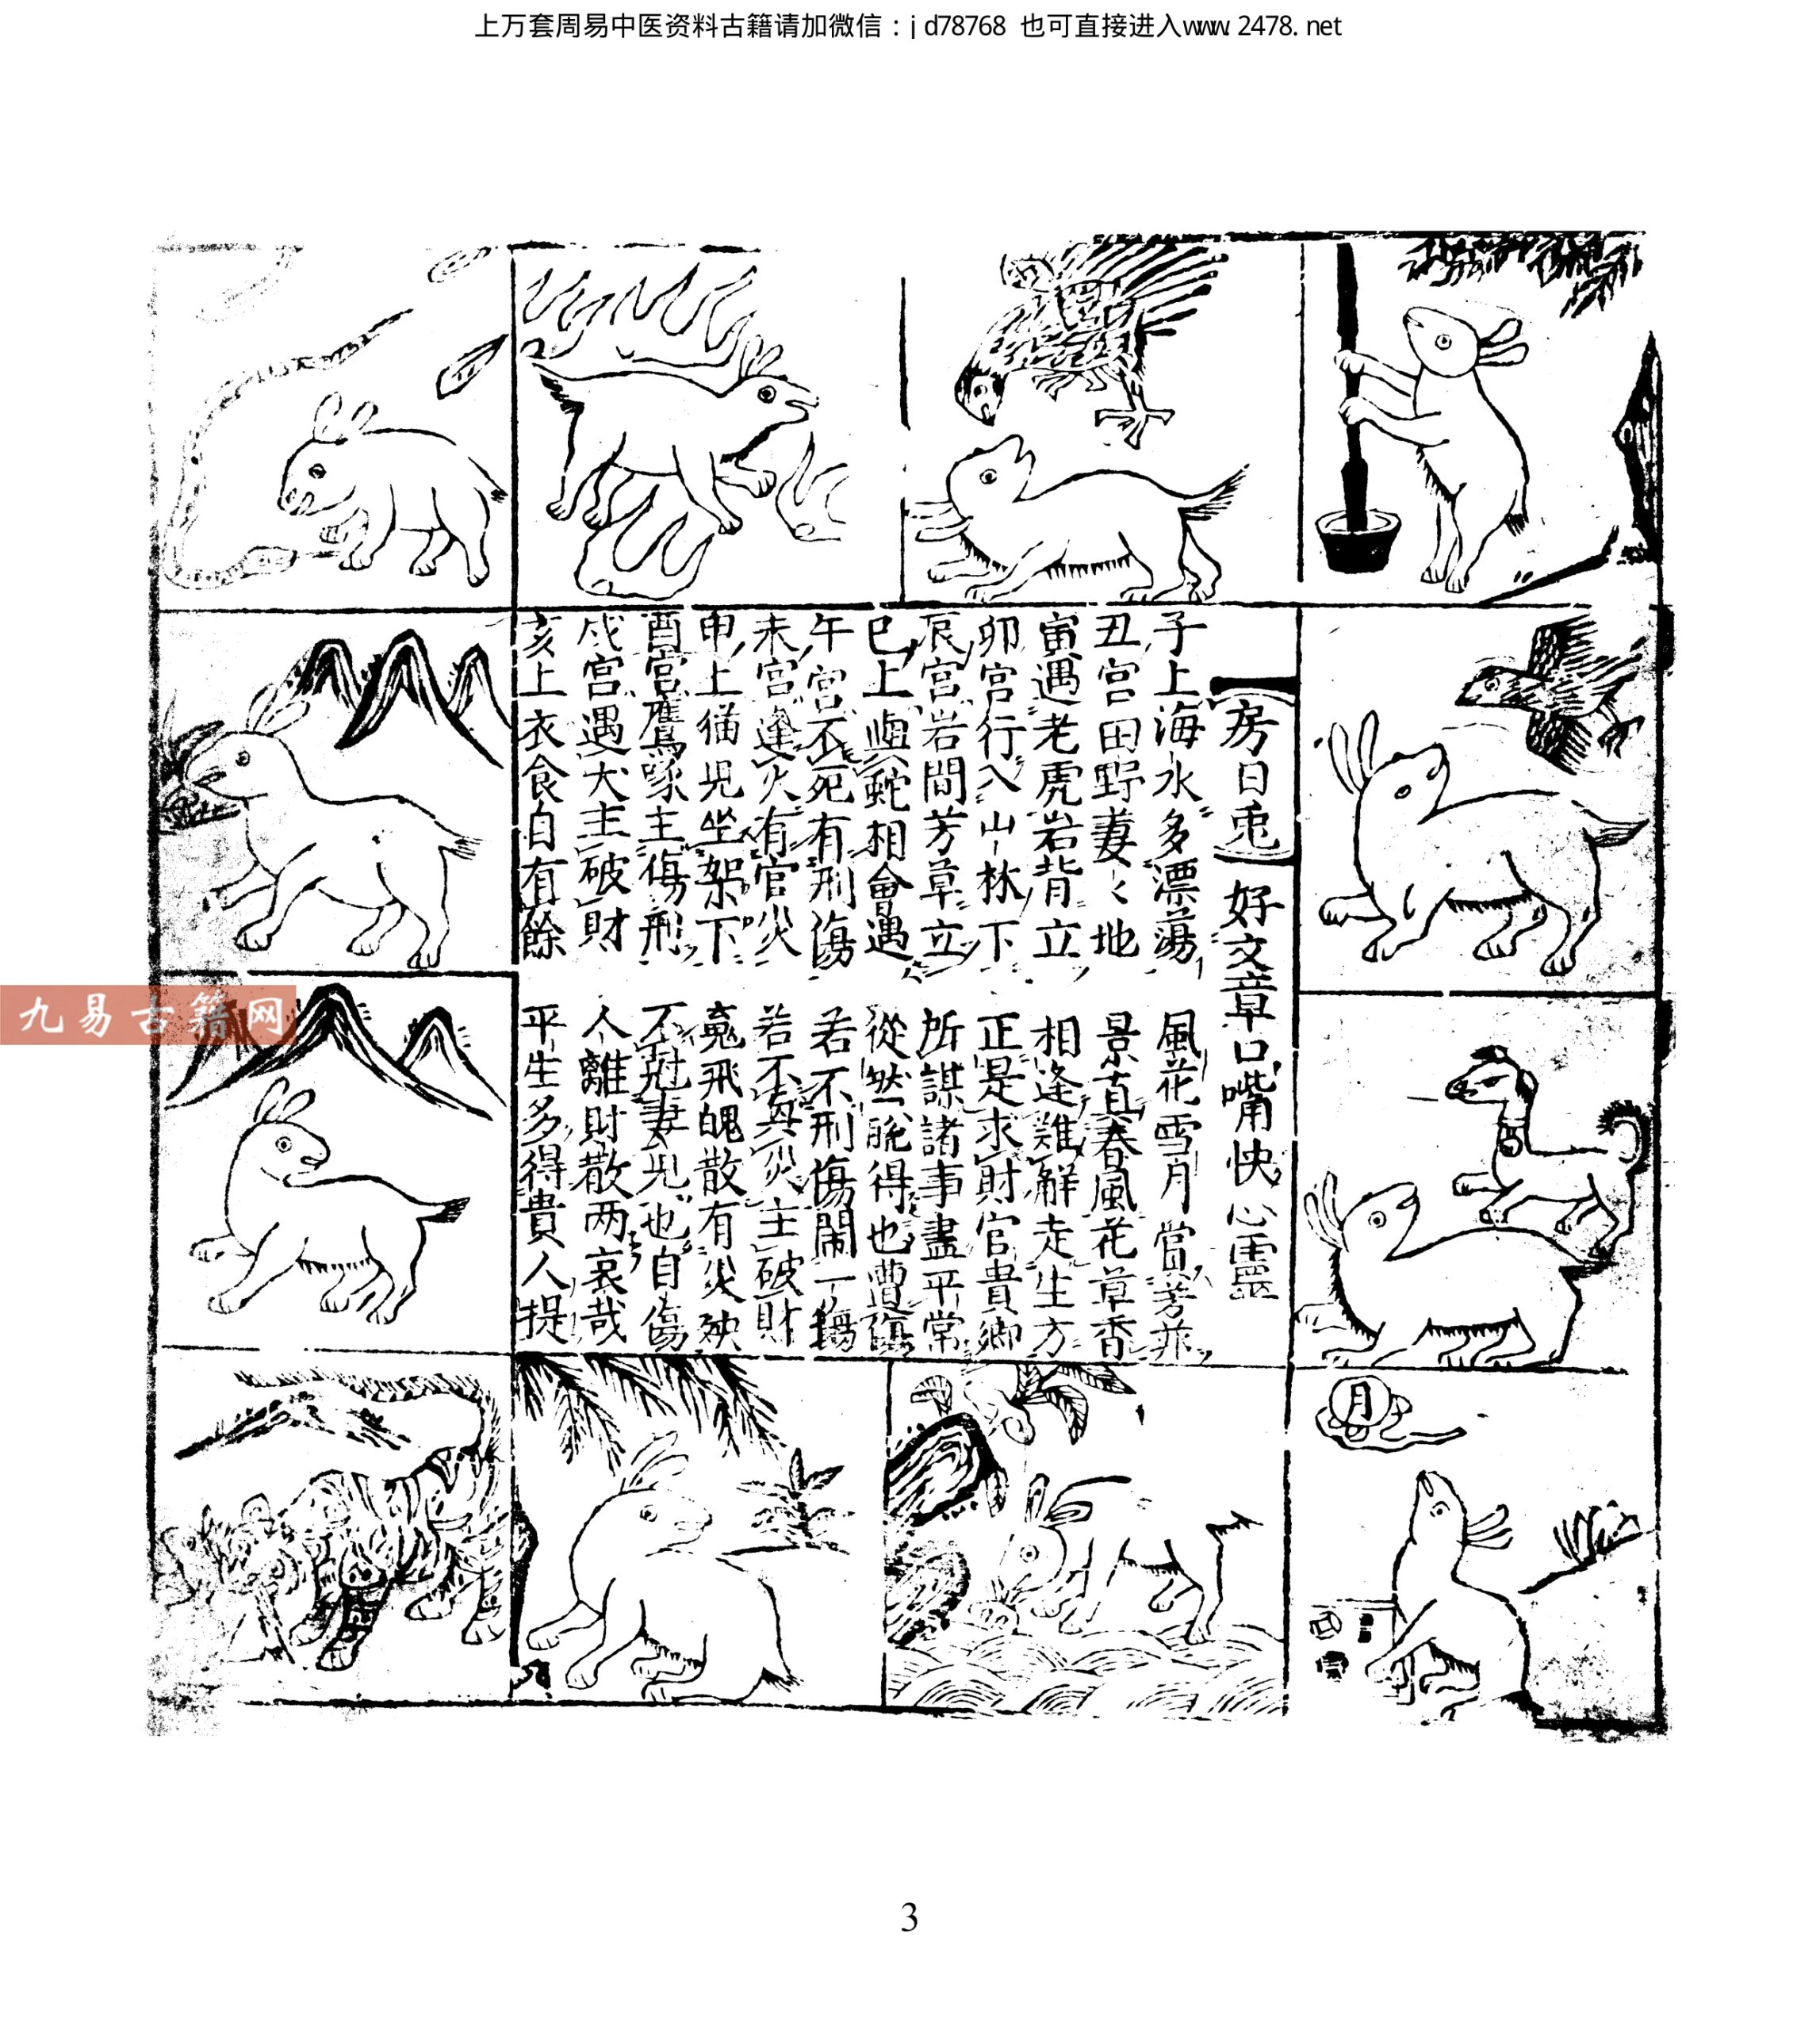 上万套周易中医资料古籍请加微信：jd78768 也可直接进入www.2478.net
【房日兎】好文章口嘴快心靈
子上海水多漂蕩 風花雪月當芳並
丑宮田野萋〻地 景真春風花草香
寅遇老虎岩背立 相逢難觧走生方
卯宮行入山林下 正是求財官貴卿
辰宮岩間芳草立 所謀諸事盡平常
巳上與蛇相會遇 從然脫得也遭
午宮不死有刑傷 若不刑傷鬧一塲
未宮逢火有官災 若不真災主破財
申上猫児坐架下 䰟飛魄散有災殃
酉宮鷹啄主傷刑 不尅妻児也自傷
戌宮遇犬主破財 人離財散两哀哉
亥上衣食自有餘 平生多得貴人提
月
九易古籍网
3